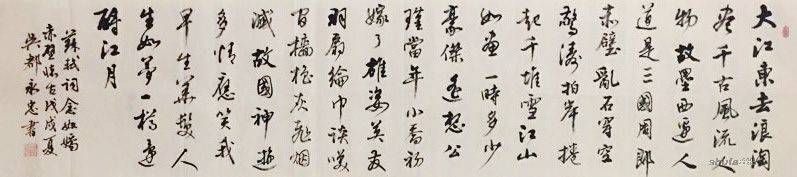 大江東去浪淘
盡千古風流人
物故壘西邊人
道是三國周郎
赤壁亂石穿空
驚濤拍岸捲
起千堆雪江山
如畫一時多少
豪傑遙想公
瑾當年小喬初
嫁了雄姿英發
羽扇綸巾談笑
間檣櫓灰飛煙
滅故國神遊
多情應笑我
早生華髮人
生如夢一樽還
酹江月
蘇軾詞念奴嬌
赤壁懷古戊戌夏
吳都永忠書